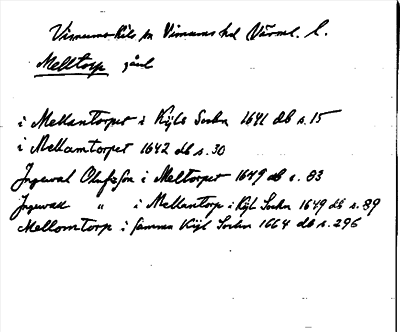 Visnums-Kils sn Visnums hd Värml. l.
Melltorp gård
i Mellantorpet i Kijls Sochn 1641 db s. 15
i Mellamtorpet 1642 db s. 30
Ingeval Olufsson i Meltorpet 1649 db s. 83
Ingevald " i Mellantorp i Kijl Sochn 1649 db s. 89
Mellomtorp i samma Kijl Sochn 1664 db s. 296